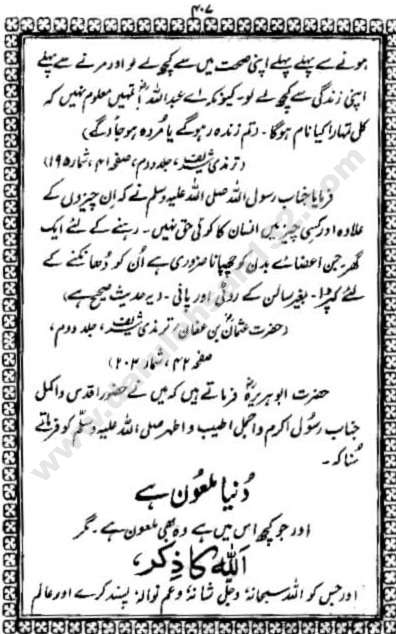 ۴۰۷
ہونے سے پہلے پہلے اپنی صحت میں سے کچھ لے لو اور مرنے سے پہلے
اپنی زندگی سے کچھ لے لو۔ کیونکہ اے عبداللہؓ! تمہیں معلوم نہیں کہ
کل تمہارا کیا نام ہوگا۔ (تم زندہ رہو گے یا مُردہ ہو جاؤ گے)
(ترمذی شریف، جلد دوم، صفحہ ۴۱، شمار ۱۹۵)
فرمایا جناب رسول اللہ صلی اللہ علیہ وسلم نے کہ اِن چیزوں کے
علاوہ اور کسی چیز میں انسان کا کوئی حق نہیں۔ رہنے کے لئے ایک
گھر۔ جن اعضائے بدن کو چھپانا ضروری ہے اُن کو ڈھانکنے کے
لئے کپڑا۔ بغیر سالن کے روٹی اور پانی۔ (یہ حدیث صحیح ہے)
(حضرت عثمانؓ بن عفان/ ترمذی شریف، جلد دوم،
صفحہ ۴۲، شمار ۲۰۳)
حضرت ابوہریرہؓ فرماتے ہیں کہ میں نے حضور اقدس و اکمل
جناب رسُول اکرم و اجمل اطیب و اطہر صلی اللہ علیہ وسلّم کو فرماتے
سُنا کہ۔
دُنیا ملعُون ہے
اور جو کچھ اس میں ہے وہ بھی ملعون ہے۔ مگر
اَللہ کا ذِکر،
اور جس کو اللہ سبحانہٗ و جل شانہٗ و عم نوالہٗ پسند کرے اور عالم